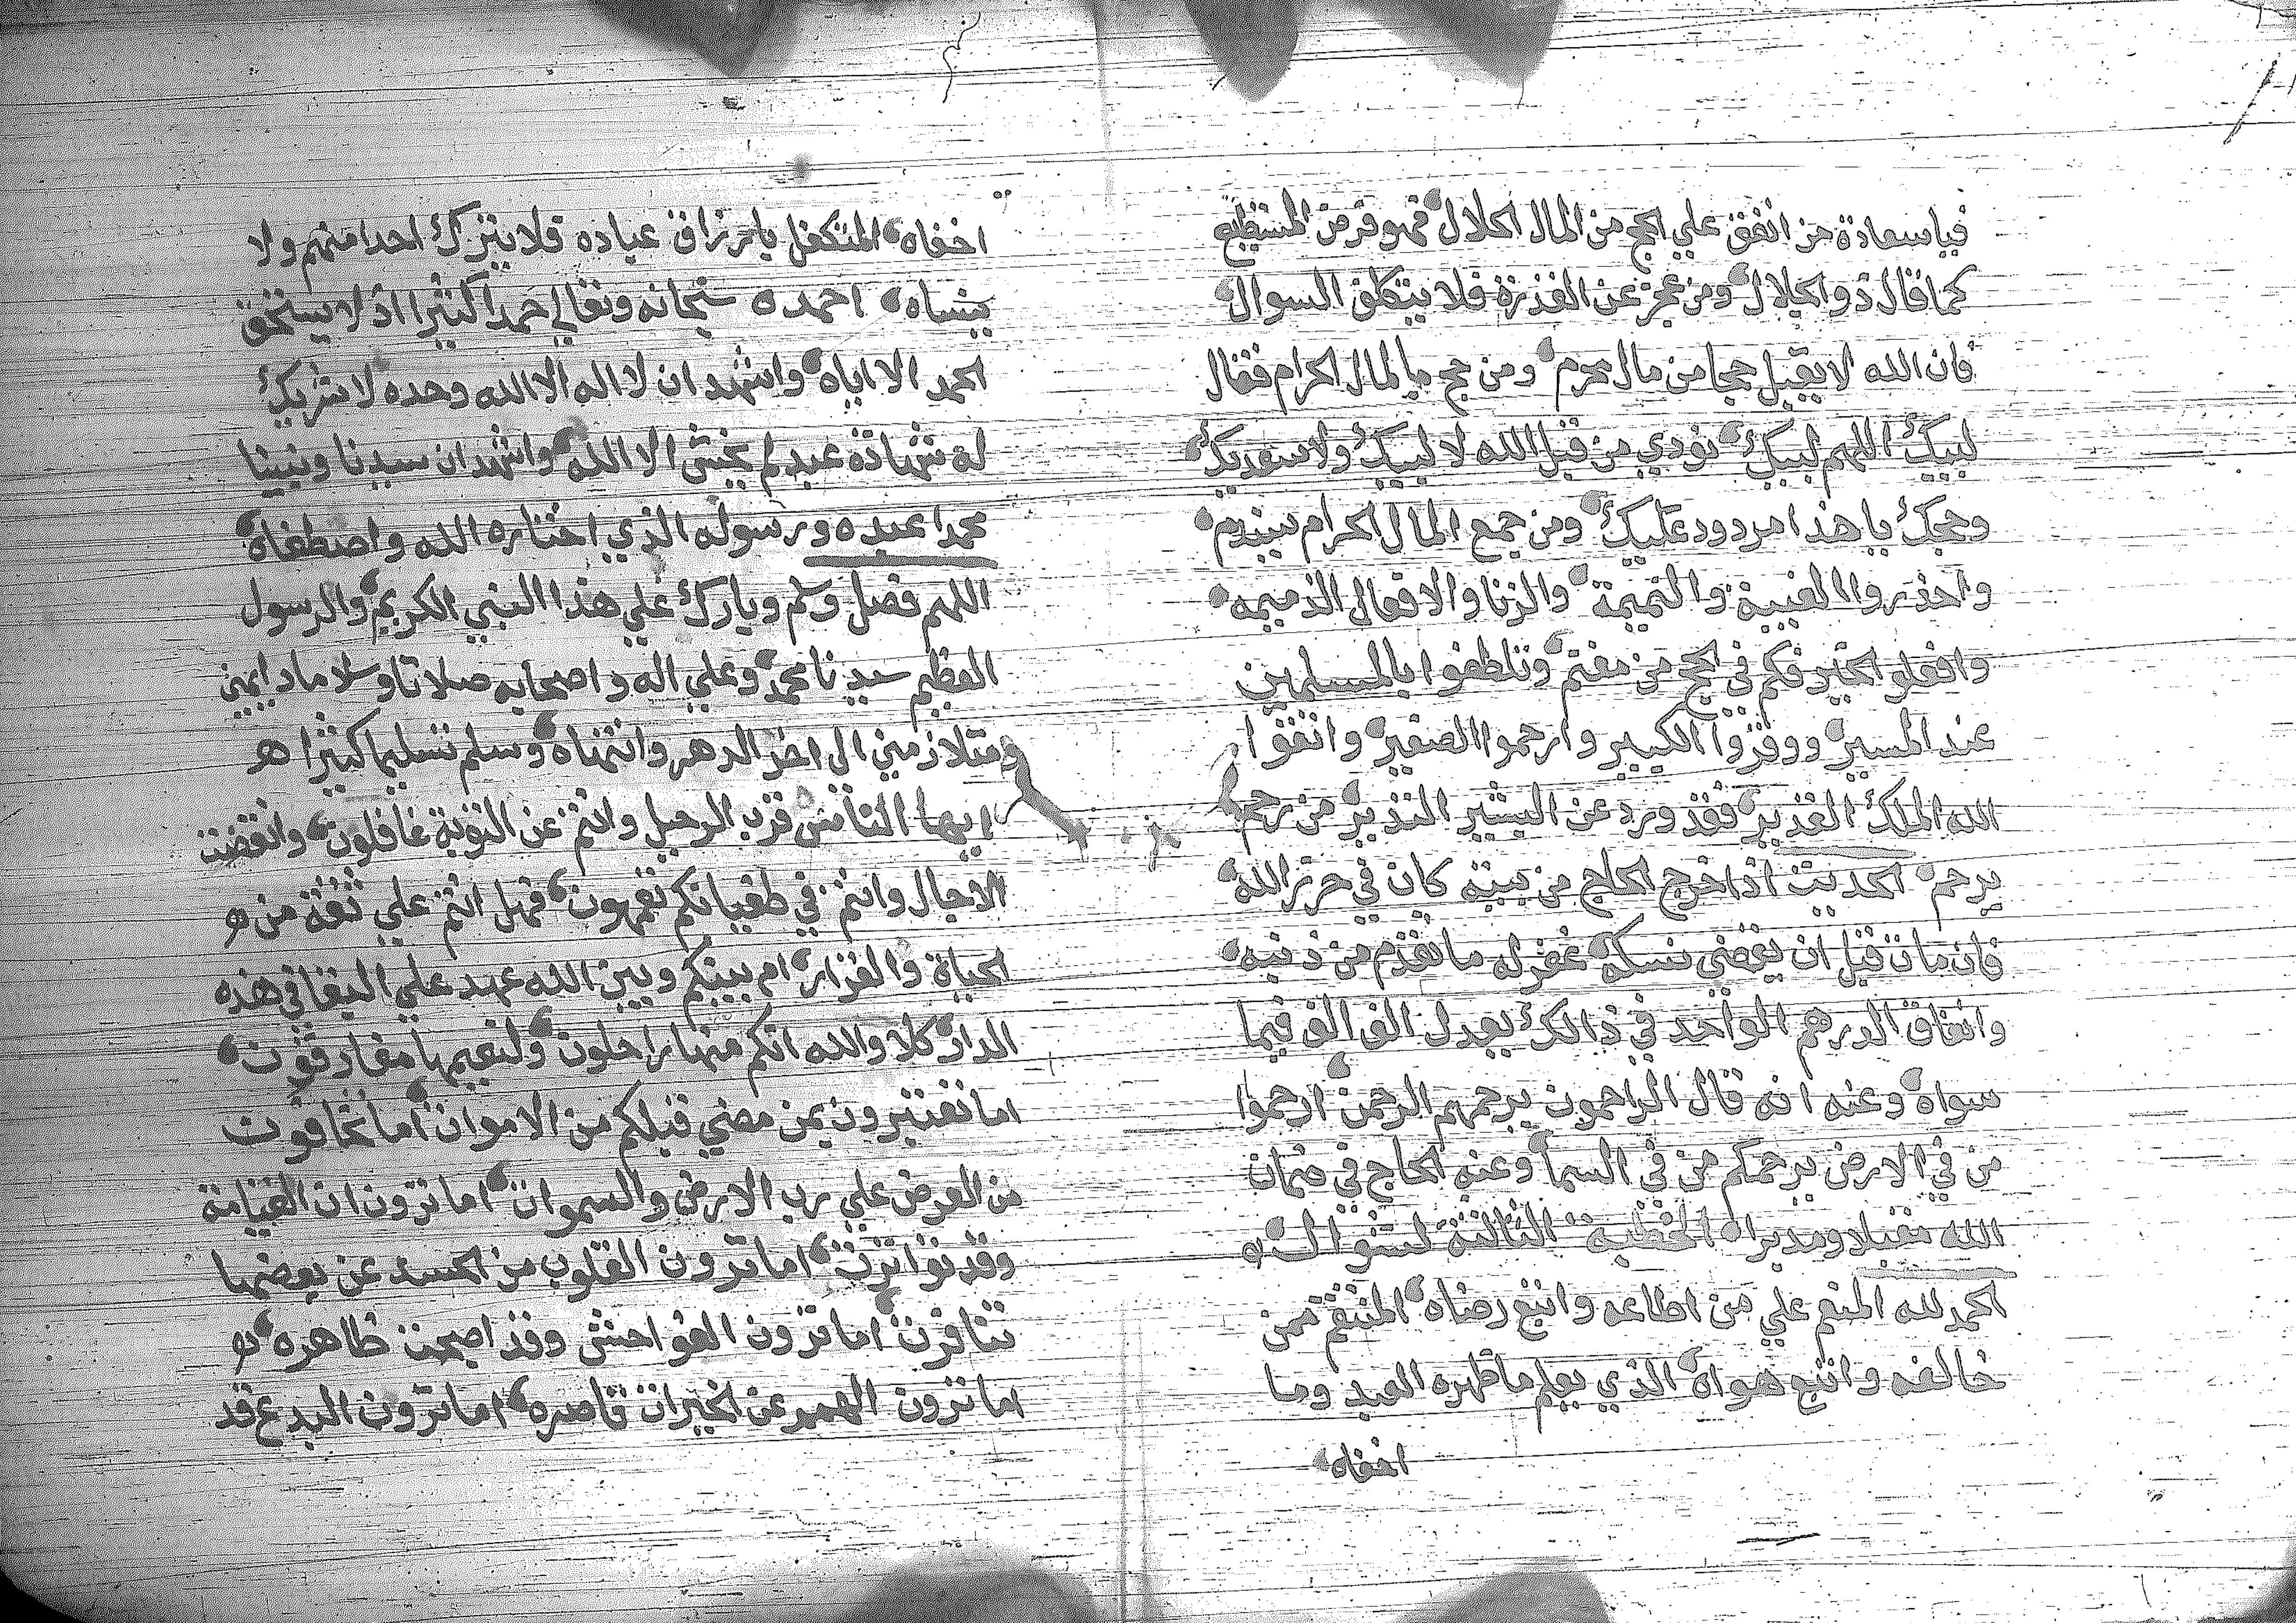 فياسعادة من انفق علي الحج من المال الحلال فهو فرض المستطيع
كما قال ذو الجلال ومن عجز عن القدرة فلا يتكلف السوال
فان الله لا يقبل حجا من مال محرم ومن حج بالمال الحرام فقال
لبيك اللهم لبيك نودي من قبل الله لا لبيك ولا سعديك
وحجك يا هذا مردود عليك ومن جمع المال الحرام سيندم
واحذروا الغيبة والنميمة والزنا والافعال الذميمه
وافعلو الخير فكم في الحج من مغنم وتلطفوا بالمسلمين
عند المسير ووقروا الكبير وارحموا الصغير واتقوا
الله الملك القدير فقد ورد عن البشير النذير من رحم
يرحم الحديث اذا خرج الحاج من بيته كان في حرز الله
فان مات قبل ان يقضي نسكه غفر له ما تقدم من ذنبه
وانفاق الدرهم الواحد في ذالك يعدل الف الف فيما
سواه وعنه انه قال الراحمون يرحمهم الرحمن ارحموا
من في الارض يرحمكم من في السما وعنه الحاج في ضمان
الله مقبلا ومدبرا الخطبة الثالثة لشوال
الحمد لله المنعم علي من اطاعه واتبع رضاه المنتقم ممن
خالفه واتبع هواه الذي يعلم ما ظهره العبد وما
اخفاه
اخفاه المتكفل بارزاق عباده فلا يترك احدا منهم ولا
ينساه احمده سبحانه وتعالي حمدا كثيرا اذ لا يستحق
الحمد الا اياه واشهد ان لا اله الا الله وحده لا شريك
له شهادة عبد لم يخش الا الله واشهد ان سيدنا ونبينا
محمدا عبده ورسوله الذي اختاره الله واصطفاه
اللهم فصل وسلم وبارك علي هذا النبي الكريم والرسول
العظيم سيدنا محمد وعلي اله واصحابه صلاتا وسلاما دايمين
ومتلازمين الي اخر الدهر وانتهاه وسلم تسليما كثيرا
ايها الناس قرب الرحيل وانتم عن التوبة غافلون وانقضت
الاجال وانتم في طغيانكم تعمهون فهل انتم علي ثقة من
الحياة والقرار ام بينكم وبين الله عهد علي البقا في هذه
الدار كلا والله انكم منها راحلون ولنعيمها مفارقون
اما تعتبرون بمن مضي قبلكم من الاموات اما تخافون
من العرض علي رب الارض والسموات اما ترون ان القيامة
وقد تواترت اما ترون القلوب من الحسد عن بعضها
تنافرت اما ترون الفواحش وقد اصبحت ظاهره
اما ترون الهمم عن الخيرات قاصره اما ترون البدع قد